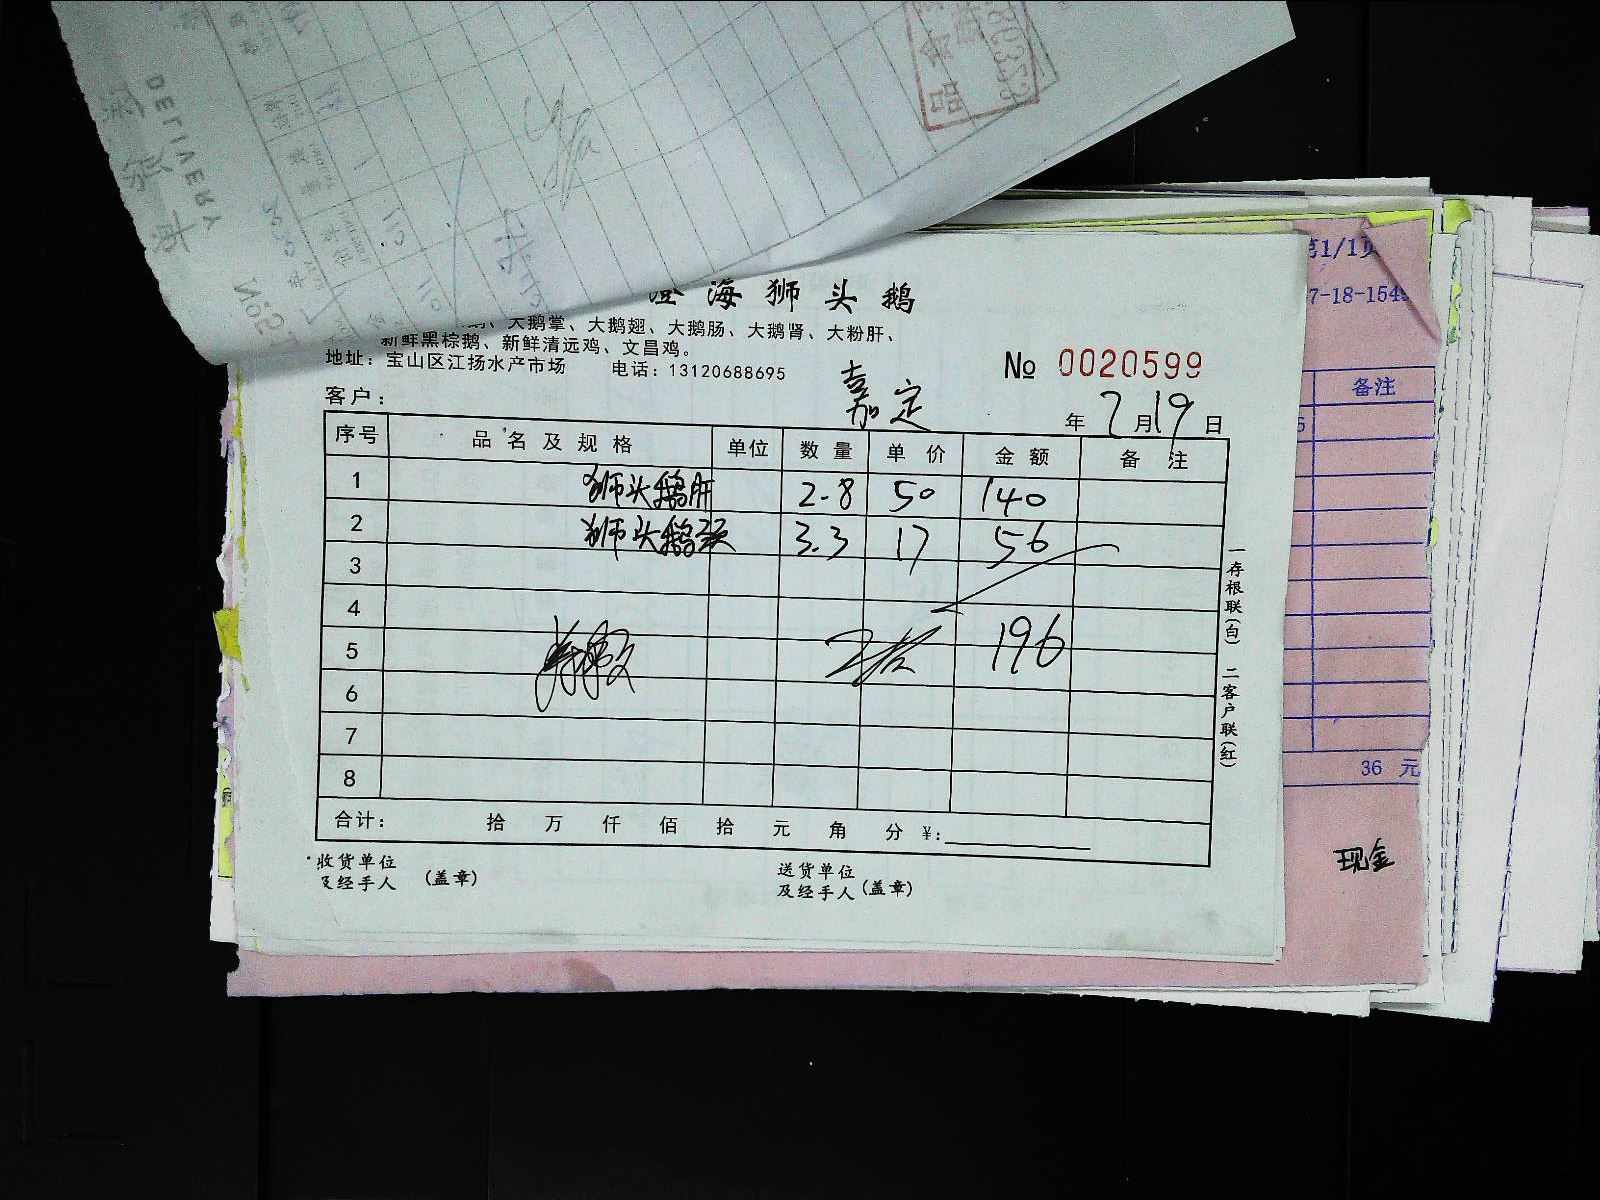 DELIVERY
澄海狮头鹅
、大鹅掌、大鹅翅、大鹅肠、大鹅肾、大粉肝、
新鲜黑棕鹅、新鲜清远鸡、文昌鸡。
地址：宝山区江扬水产市场 电话：13120688695
№ 0020599
客户： 嘉定 年 7月19日
序号 品名及规格 单位 数量 单价 金额 备注
1 狮头鹅肝 2.8 50 140
2 狮头鹅颈 3.3 17 56
3
4
5 196
6
7
8
合计： 拾 万 仟 佰 拾 元 角 分 ￥：
收货单位
及经手人 (盖章)
送货单位
及经手人 (盖章)
一存根联(白) 二客户联(红)
第1/1页
7-18-154
备注
36 元
现金